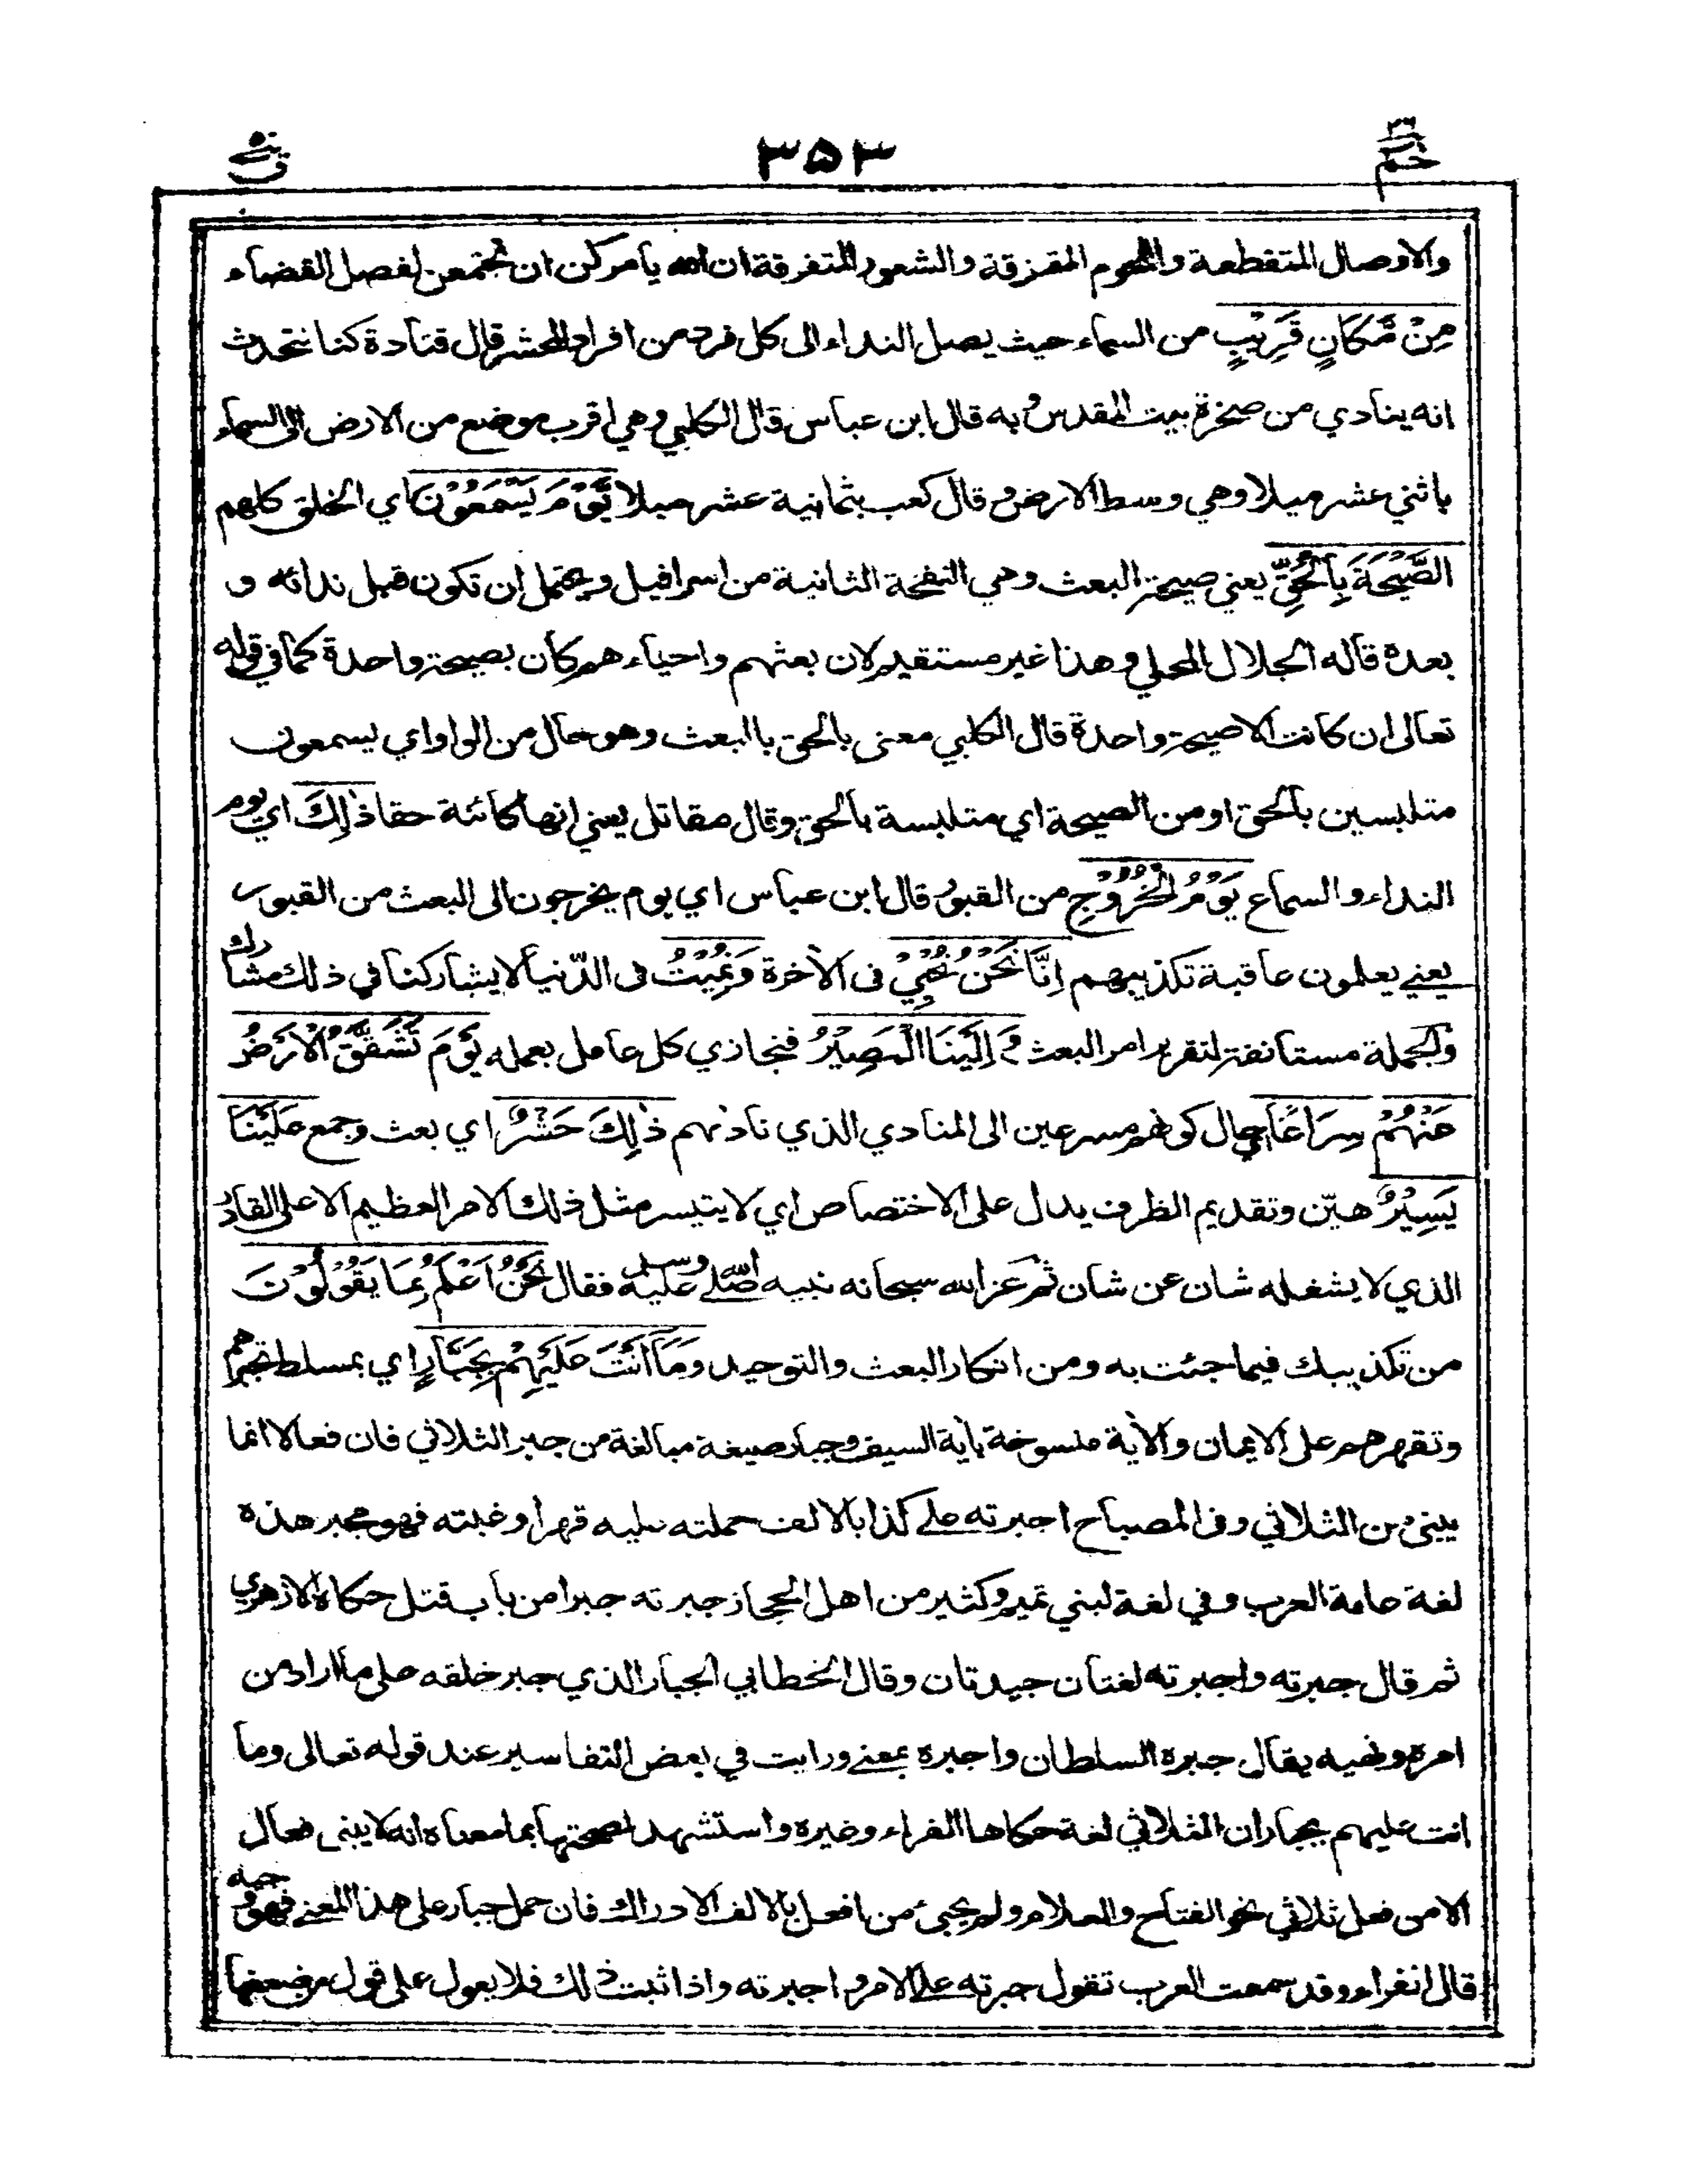 حم ٢٦ ٣٥٣ ق
والاوصال المتقطعة واللحوم المتمزقة والشعور المتفرقة ان الله يأمركن ان تجتمعن لفصل القضاء
مِنْ مَّكَانٍ قَرِيْبٍ من السماء حيث يصل النداء الى كل فرد من افراد المحشر قال قتادة كنا نتحدث
انه ينادي من صخرة بيت المقدس وبه قال ابن عباس قال الكلبي وهي اقرب موضع من الارض الى السماء
باثني عشر ميلا وهي وسط الارض وقال كعب بثمانية عشر ميلا يَّوْمَ يَسْمَعُوْنَ اي الخلق كلهم
الصَّيْحَةَ بِالْحَقِّ يعني صيحة البعث وهي النفخة الثانية من اسرافيل ويحتمل ان تكون قبل ندائه و
بعده قاله الجلال المحلي وهذا غير مستقيم لان بعثهم واحياءهم كان بصيحة واحدة كما في قوله
تعالى ان كانت الا صيحة واحدة قال الكلبي معنى بالحق بالبعث وهو حال من الواو اي يسمعون
متلبسين بالحق او من الصيحة اي متلبسة بالحق وقال مقاتل يعني انها كائنة حقا ذٰلِكَ اي يوم
النداء والسماع يَوْمُ الْخُرُوْجِ من القبور قال ابن عباس اي يوم يخرجون الى البعث من القبور
يعني يعلمون عاقبة تكذيبهم اِنَّا نَحْنُ نُحْيِيْ فى الاٰخرة وَنُمِيْتُ فى الدّنيا لا يشاركنا في ذلك مشارك
والجملة مستانفة لتقرير امر البعث وَاِلَيْنَا الْمَصِيْرُ فنجازي كل عامل بعمله يَوْمَ تَشَقَّقُ الْاَرْضُ
عَنْهُمْ سِرَاعًا حال كونهم مسرعين الى المنادي الذي نادىهم ذٰلِكَ حَشْرٌ اي بعث وجمع عَلَيْنَا
يَسِيْرٌ هيّن وتقديم الظرف يدل على الاختصاص اي لا يتيسر مثل ذلك الامر العظيم الا على القادر
الذي لا يشغله شان عن شان ثم عز الله سبحانه نبيه صلى الله عليه وسلم فقال نَحْنُ اَعْلَمُ بِمَا يَقُوْلُوْنَ
من تكذيبك فيما جئت به ومن انكار البعث والتوحيد وَمَا اَنْتَ عَلَيْهِمْ بِجَبَّارٍ اي بمسلط تجبرهم
وتقهرهم على الايمان والاٰية منسوخة باٰية السيف وجبار صيغة مبالغة من جبر الثلاثي فان فعالا انما
يبنى من الثلاثي وفى المصباح اجبرته على كذا بالالف حملته عليه قهرا وغلبته فهو مجبر هذه
لغة عامة العرب وفي لغة لبني تميم وكثير من اهل الحجاز جبرته جبرا من باب قتل حكاه الازهري
ثم قال جبرته واجبرته لغتان جيدتان وقال الخطابي الجبار الذي جبر خلقه على ما اراد من
امره ونهيه يقال جبره السلطان واجبره بمعنى ورايت في بعض التفاسير عند قوله تعالى وما
انت عليهم بجبار ان الثلاثي لغة حكاها الفراء وغيره واستشهد لصحتها بما معناه انه لا يبنى فعال
الا من فعل ثلاثي نحو الفتاح والعلام ولم يجئ من افعل بالالف الا دراك فان حمل جبار على هذا المعنى فهو وجه
قال الفراء وقد سمعت العرب تقول جبرته على الامر واجبرته واذا ثبت ذلك فلا يعول على قول من ضعفها